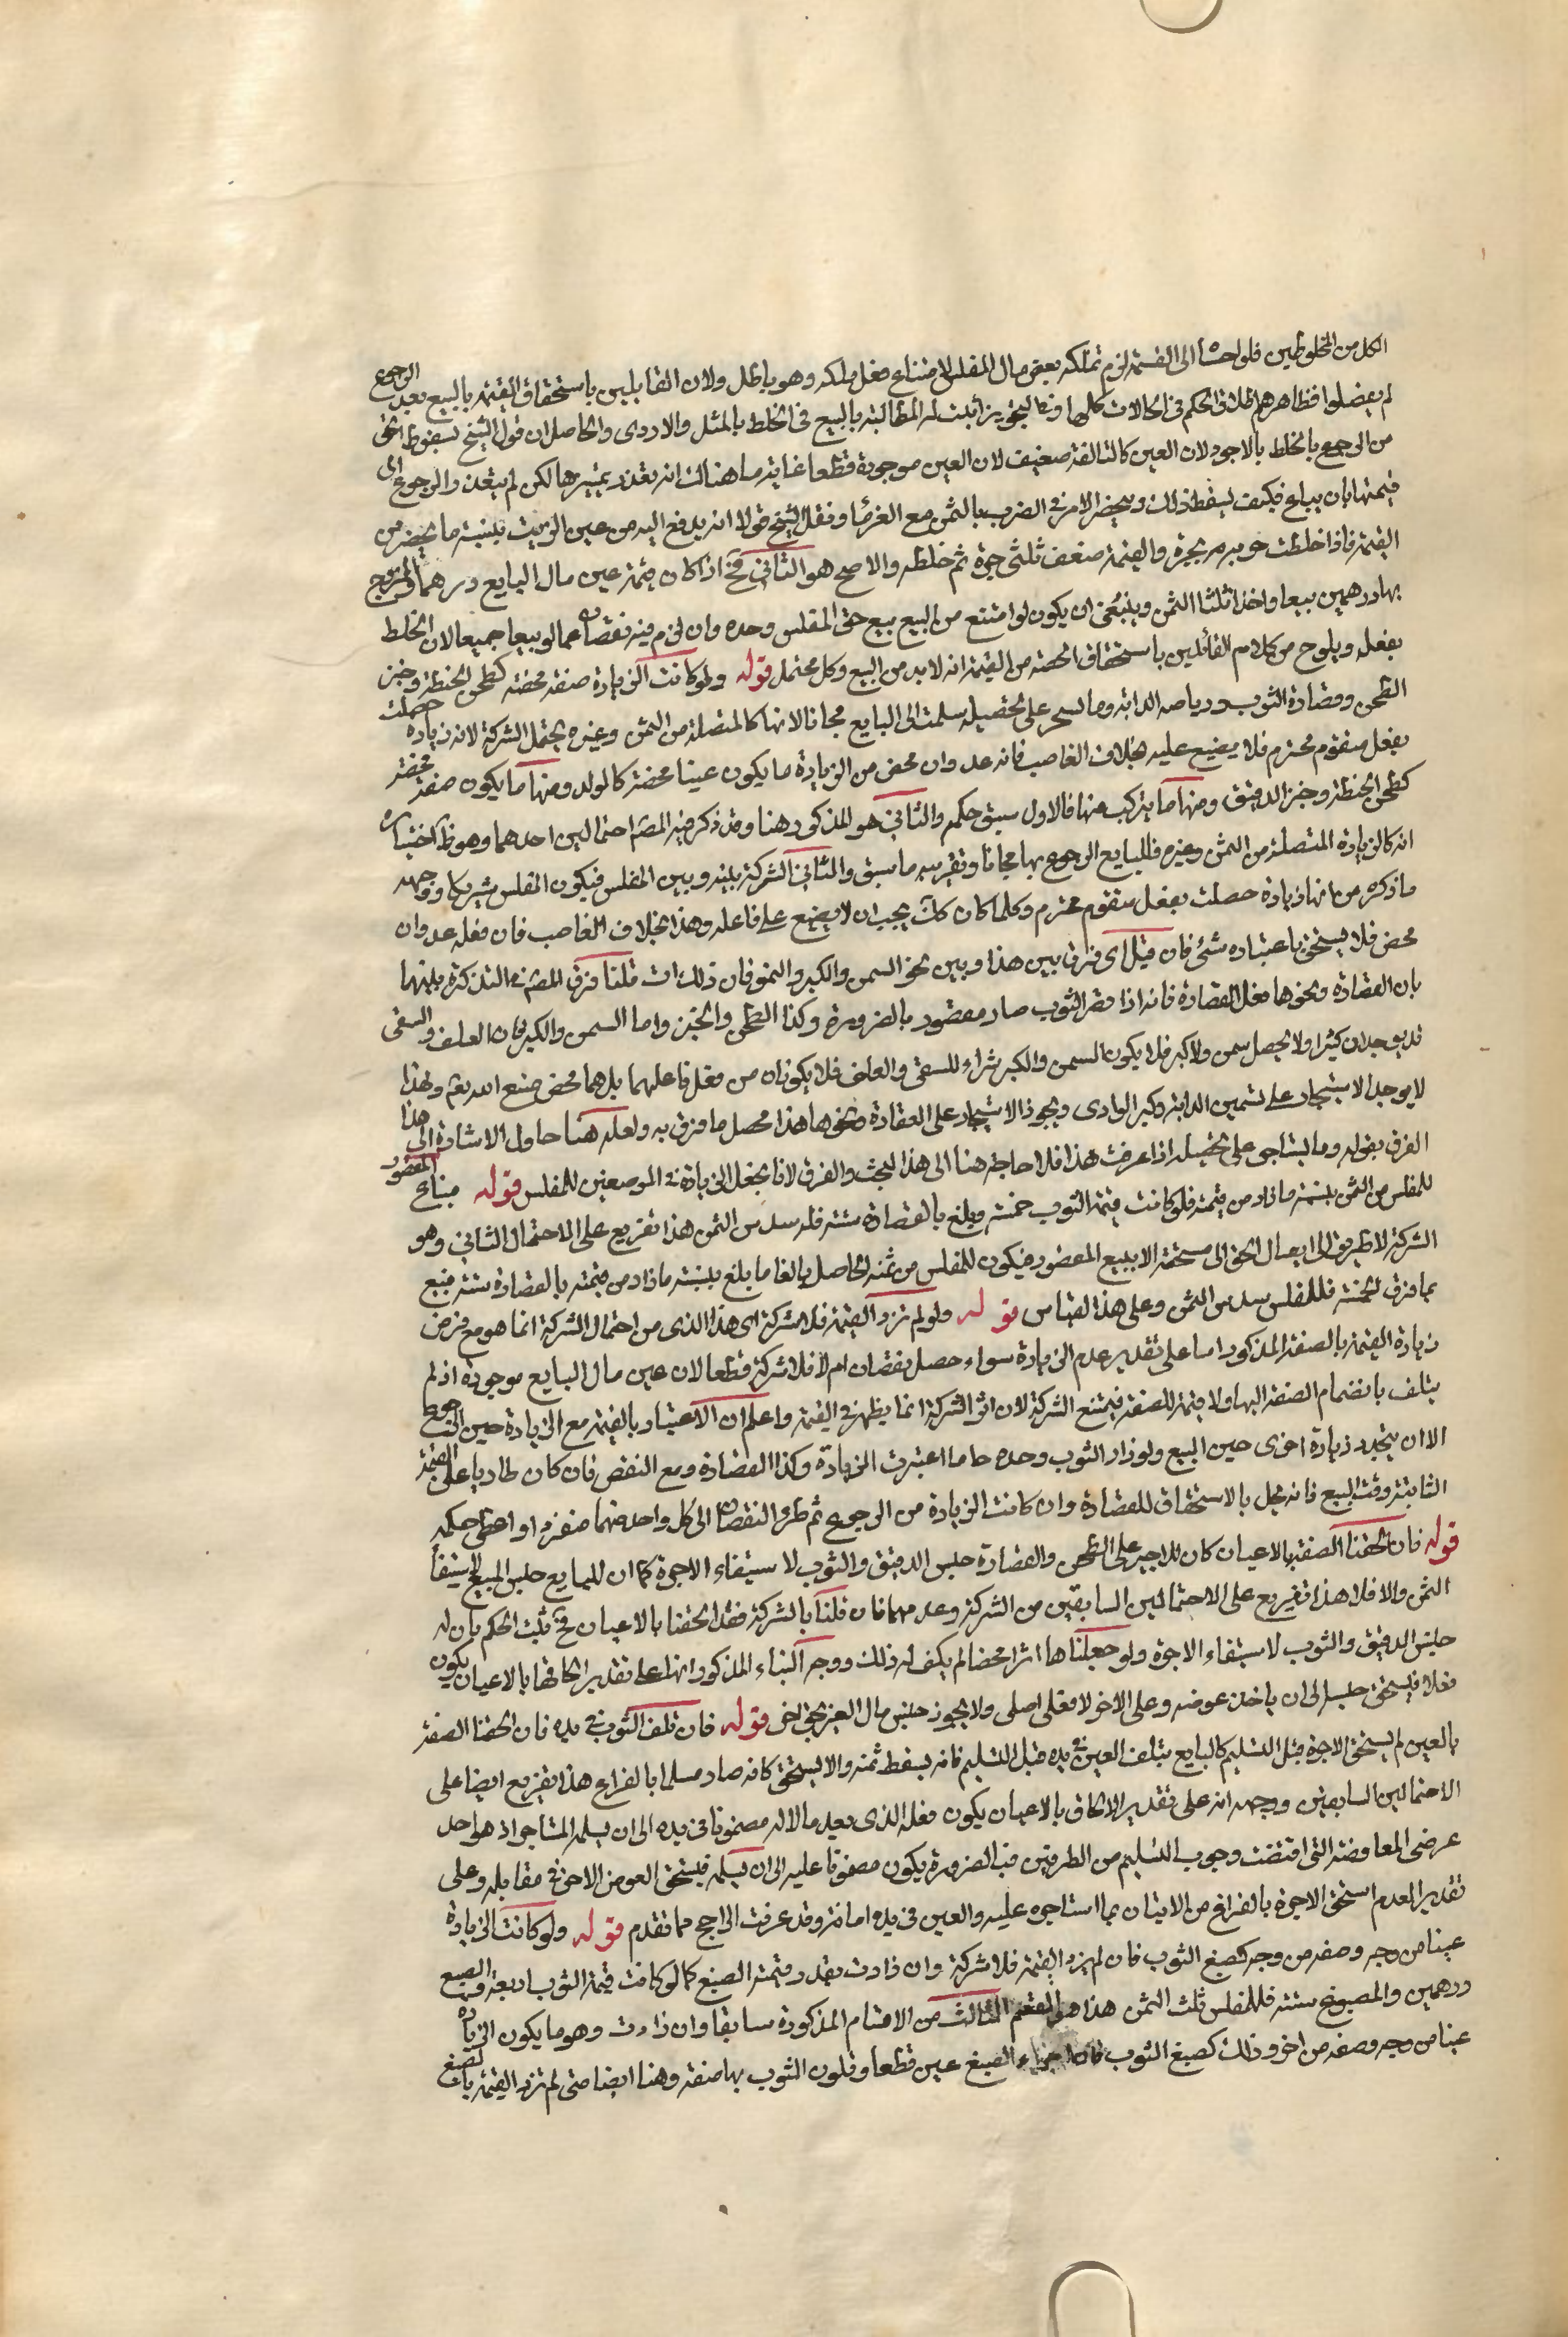 الكل من المخلوطين فلو احتيا الى القسمة لزم تملكه بعض مال المفلس لامتناع فعل ملكه وهو باطل ولان القايلين باستحقاق القيمة بالبيع بعد الرجوع
لم يفصلوا فظاهرهم اطلاق الحكم في الحالات كلها وفي التحرير اثبت له المطالبة بالبيع في الخلط بالمثل والاردى والحاصل ان قول الشيخ بسقوط الحق
من الرجوع بالخلط بالاجود لان العين كالتالفة ضعيف لان العين موجودة قطعا غاية ما هنالك انه تعذر تميزها لكن لم يتعذر الرجوع الى
قيمتها بان يباع فكيف يسقط ذلك وينحصر الامر في الضرب بالثمن مع الغرما ونقل الشيخ قولا انه يدفع اليه من عين الزيت بنسبة ما يخصه من
القيمة فاذا خلطت جرة بجرة والقيمة ضعف ثلثى جرة ثم خلطه والاصح هو الثاني فح اذا كان قيمة عين مال البايع درهما والممزوج
بها درهمين بيعا واخذ ثلثا الثمن وينبغى ان يكون لو امتنع من البيع بيع حق المفلس وحده وان لزم فيه نقصان عما لو بيعا جميعا لان الخلط
بفعله ويلوح من كلام القائلين باستحقاق الحصة من القيمة انه لا بد من البيع وكل محتمل قوله ولو كانت الزيادة صفة محضة كطحن الحنطة وخبز
الطحن وقصارة الثوب ورياضة الدابة وما يستاجر على تحصيله سلمت الى البايع مجانا لانها كالمتصلة من السمن وغيره يحتمل الشركة لانه زيادة حصلت
بفعل متقوم محترم فلا يضيع عليه بخلاف الغاصب فانه عدوان محض من الزيادة ما يكون عينا محضة كالولد ومنها ما يكون صفة محضة
كطحن الحنطة وخبز الدقيق ومنها ما يتركب منها فالاول سبق حكمه والثاني هو المذكور هنا وقد ذكر فيه المص احتمالين احدهما وهو ظ اختياره
انه كالزيادة المتصلة من السمن وغيره فللبايع الرجوع بها مجانا وتقريبه ما سبق والثاني الشركة بينه وبين المفلس فيكون المفلس شريكا ووجهه
ما ذكره من انها زيادة حصلت بفعل متقوم محترم وكلما كان كك يجب ان لا يضيع على فاعله وهذا بخلاف الغاصب فان فعله عدوان
محض فلا يستحق باعتباره شئ فان قيل اى فرق بين هذا وبين نحو السمن والكبر والنمو فان ذلك اث قلنا فرق المص في التذكرة بينهما
بان القصارة ونحوها فعل القصارة فانه اذا قصر الثوب صار مقصور بالضرورة وكذا الطحن والخبز واما السمن والكبر فان العلف والسقى
قد يوجدان كثيرا ولا يحصل سمن ولا كبر فلا يكون السمن والكبر شراء للسقى والعلف فلا يكونان من فعل فاعلهما بل هما محض صنع الله تعم ولهذا
لا يوجد الاستيجار على تسمين الدابة وكبر الوادى ويجوز الاستيجار على القصارة ونحوها هذا محصل ما فرق به ولعله هنا حاول الاشارة الى هذا
الفرق بقوله وما يستاجر على تحصيله اذا عرفت هذا فلا حاجة هنا الى هذا البحث والفرق لانا نجعل الزيادة في الموضعين للمفلس قوله فيباع المقصور
للمفلس من الثمن بنسبة ما زاد من قيمته فلو كانت قيمة الثوب خمسة وبلغ بالقصارة ستة فله سدس الثمن هذا تفريع على الاحتمال الثاني وهو
الشركة لا طريق الى ايصال الحق الى مستحقه الا ببيع المقصور فيكون للمفلس من ثمنه الحاصل بالغا ما بلغ بنسبة ما زاد من قيمته بالقصارة ستة فبيع
بما فرق الخمسة فللمفلس سدس الثمن وعلى هذا القياس قوله ولو لم تزد القيمة فلا شركة اى هذا الذى من احتمال الشركة انما هو مع فرض
زيادة القيمة بالصفة المذكور اما على تقدير عدم الزيادة سواء حصل نقصان ام لا فلا شركة قطعا لان عين مال البايع موجودة اذ لم
يتلف بانضمام الصفة اليها ولا قيمة للصفة فيمتنع الشركة لان اثر الشركة انما يظهر في القيمة واعلم ان الاعتبار بالقيمة مع الزيادة حين الرجوع
الا ان يتجدد زيادة اخرى حين البيع ولو زاد الثوب وحده حاما اعتبرت الزيادة وكذا القصارة ومع النقص فان كان طاريا على القيمة
الثابتة وقت البيع فانه مخل بالاستحقاق للقصارة وان كانت الزيادة من الرجوع ثم طرو النقصان الى كل واحد منهما منفردا او اعطى حكمه
قوله فان الحقنا الصفة بالاعيان كان للاجير على الطحن والقصارة حبس الدقيق والثوب لاستيفاء الاجرة كما ان للبايع حبس المبيع لاستيفاء
الثمن والا فلا هذا تفريع على الاحتمالين السابقين من الشركة وعدمها فان قلنا بالشركة فقد الحقنا بالاعيان فح يثبت الحكم بان له
حبس الدقيق والثوب لاستيفاء الاجرة ولو جعلناها اثرا محضا لم يكن له ذلك ووجه البناء المذكور انها على تقدير الحاقها بالاعيان يكون
فعلا فيستحق حبسه الى ان ياخذ عوضه وعلى الاخر لا فعلى اصلى ولا يجوز حبس مال الغير بحق اخر قوله فان تلف الثوب في يده فان الحقنا الصفة
بالعين لم يستحق الاجرة قبل التسليم كالبايع يتلف العين في يده قبل التسليم فانه يسقط ثمنه والا يستحق كانه صار مسلما بالفراغ هذا تفريع ايضا على
الاحتمالين السابقين ووجهه انه على تقدير الالحاق بالاعيان يكون فعله الذى يعد مالا له مضمونا في يده الى ان يسلمه المستاجر اذ هو احد
عرضى المعاوضة التى اقتضت وجوب التسليم من الطرفين فبالضرورة يكون مضمونا عليه الى ان يسلمه فيستحق العوض الاخر في مقابله وعلى
تقدير العدم استحق الاجرة بالفراغ من الاتيان بما استاجره عليه والعين في يده امانة وقد عرفت الراجح مما تقدم قوله ولو كانت الزيادة
عينا من وجه وصفة من وجه كصبغ الثوب فان لم يزد القيمة فلا شركة وان زادت بقدر قيمة الصبغ كما لو كانت قيمة الثوب اربعة والصبغ
درهمين والمصبوغ ستة فللمفلس ثلث الثمن هذا هو القسم الثالث من الاقسام المذكورة سابقا وان زادت وهو ما يكون الزيادة
عينا من وجه وصفة من اخر وذلك كصبغ الثوب فان اجزاء الصبغ عين قطعا وتلون الثوب بها صفة وهنا ايضا متى لم تزد القيمة بالصبغ